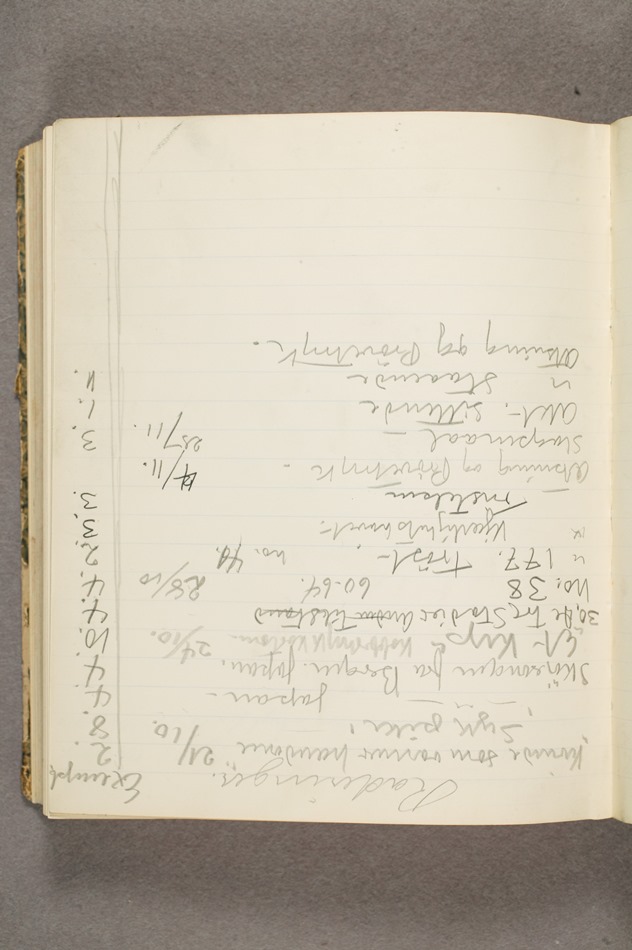 Raderinger. Exempl
"Kvinde som varmer hændene" 21/10. 2.
" Syk pike. 8.
" — " — Japan - 4.
Skøiesangen fra Bergen. Japan. 4.
"Et Kys" Kobbertryk Kartom. 24/10. 10.
30, De tre Stadier Anden Tilstand 4.
No. 38 60-64. 28/10 4.
" 177. Trøst - . no. 41. 2.
" Kjærlighetshavet. 3.
Fristelsen 3.
Ætsning og Prøvetryk - 4/11.
Slagsmaal — 25/11. 3.
Akt. Sittende 1.
" Staaende 11.
Ætsning og Prøvetryk.